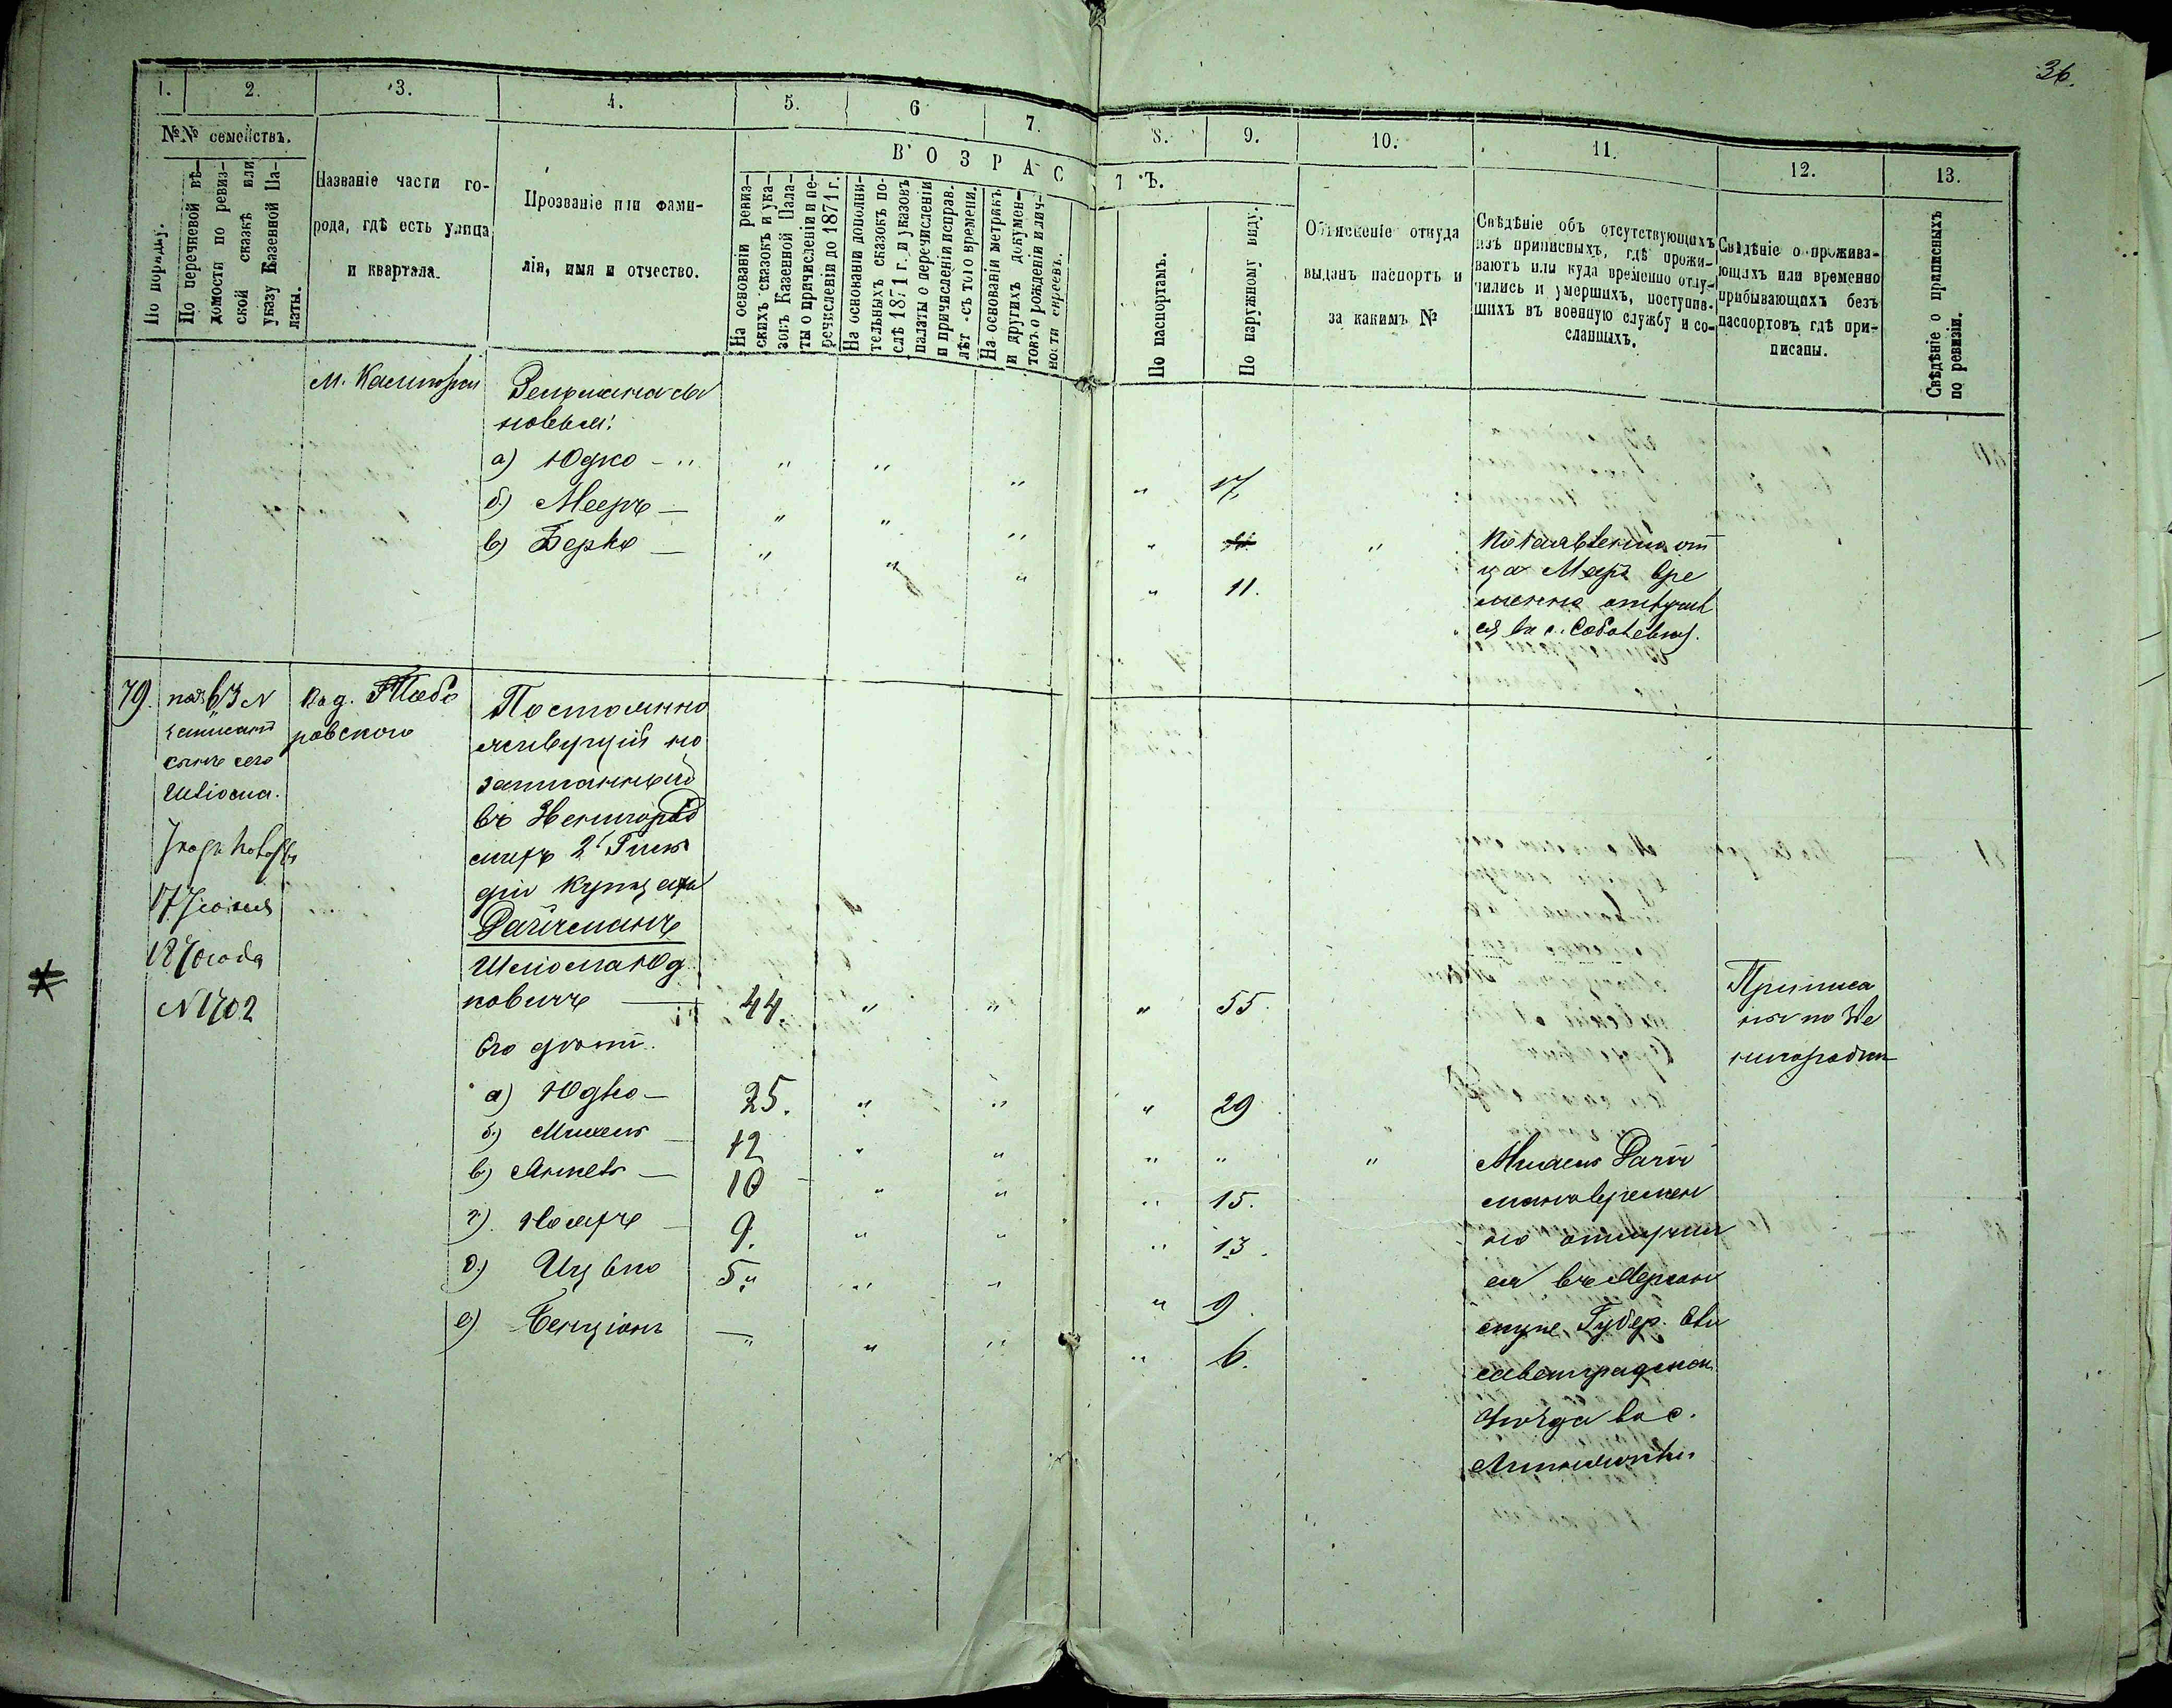 36.
1.
2.
3.
4.
5.
6
7.
8.
9.
10.
11.
12.
13.
№№ семействъ.
По порядку.
По перечневой вѣ-
домости по ревиз-
ской сказкѣ или
указу Казенной Па-
латы.
Названіе части го-
рода, гдѣ есть улица
и квартала.
Прозваніе или фами-
лія, имя и отчество.
ВОЗРАС
ТЪ.
На основаніи ревиз-
скихъ сказокъ и ука-
зовъ Казенной Пала-
ты о причисленіи и пе-
речисленіи до 1871 г.
На основаніи дополни-
тельныхъ сказокъ по-
слѣ 1871 г. и указовъ
палаты о перечисленіи
и причисленіи исправ.
лѣт. съ того времени.
На основаніи метрикъ
и другихъ докумен-
товъ о рожденіи и лич-
ности евреевъ.
По паспортамъ.
По наружному виду.
Объясненіе откуда
выданъ паспортъ и
за какимъ №
Свѣдѣніе объ отсутствующихъ
изъ приписныхъ, гдѣ прожи-
ваютъ или куда временно отлу-
чились и умершихъ, поступив-
шихъ въ военную службу и со-
сланныхъ.
Свѣдѣніе о прожива-
ющихъ или временно
прибывающихъ безъ
паспортовъ гдѣ при-
писаны.
Свѣдѣніе о приписныхъ
по ревизіи.
новья:
а) Юдко - " " " " " 17
б) Мееръ — " " " "
в) Берко — " " " " 11.
ца Меер вре
менно отлучил
ся въ с. Соболевку.
79.
63 №
сынъ его
Шліома.
17 Іюня
1870 года
№ 1702
ровского
Постоянно
живущій но
записанный
въ Звенигород
2й Гиль
діи купцемъ
Райчманъ
Шліома Юд
ковичъ — 44. " " " 55.
Приписа
ны по Зве
нигородки
Его дѣти.
а) Юдко — 25. " " " 29
б) — 12 " " " " "
в) — 10 " " " 15.
г) — 9. " " " 13.
д) Ицько 5 " " " " 9.
е) Бенціонъ — " " " " 6.
Райч
манъ времен
но отлучил
ся въ Херсон
скую Губер. Ели
саветградскаго
уѣзда въ с.